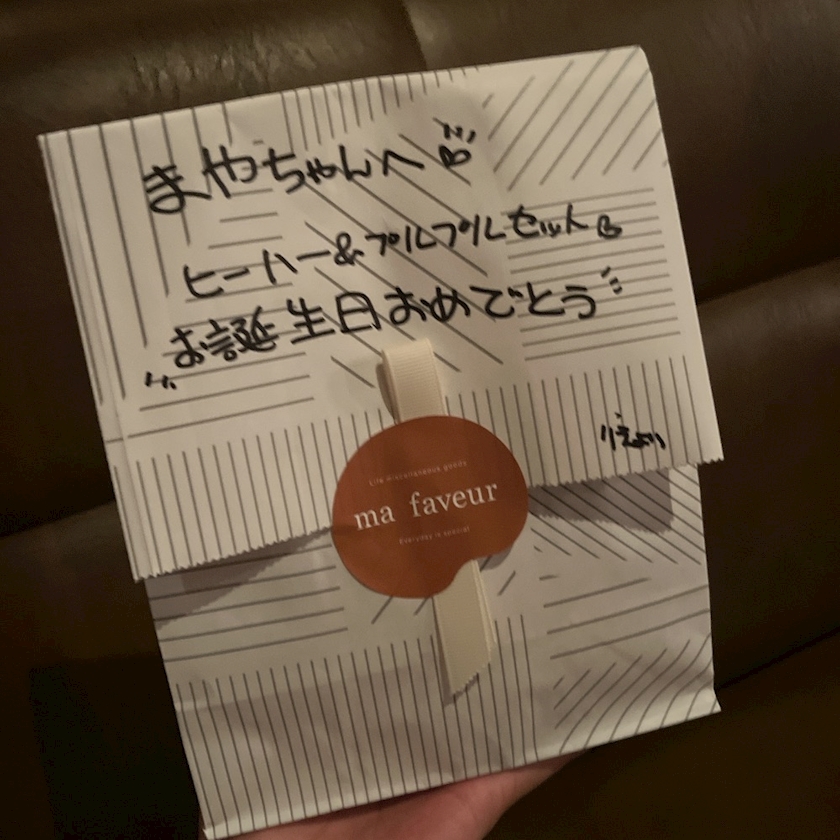 まやちゃんへ
ヒーハー&プルプルセット
お誕生日おめでとう
りえより
Life miscellaneous goods
ma faveur
Everyday is special